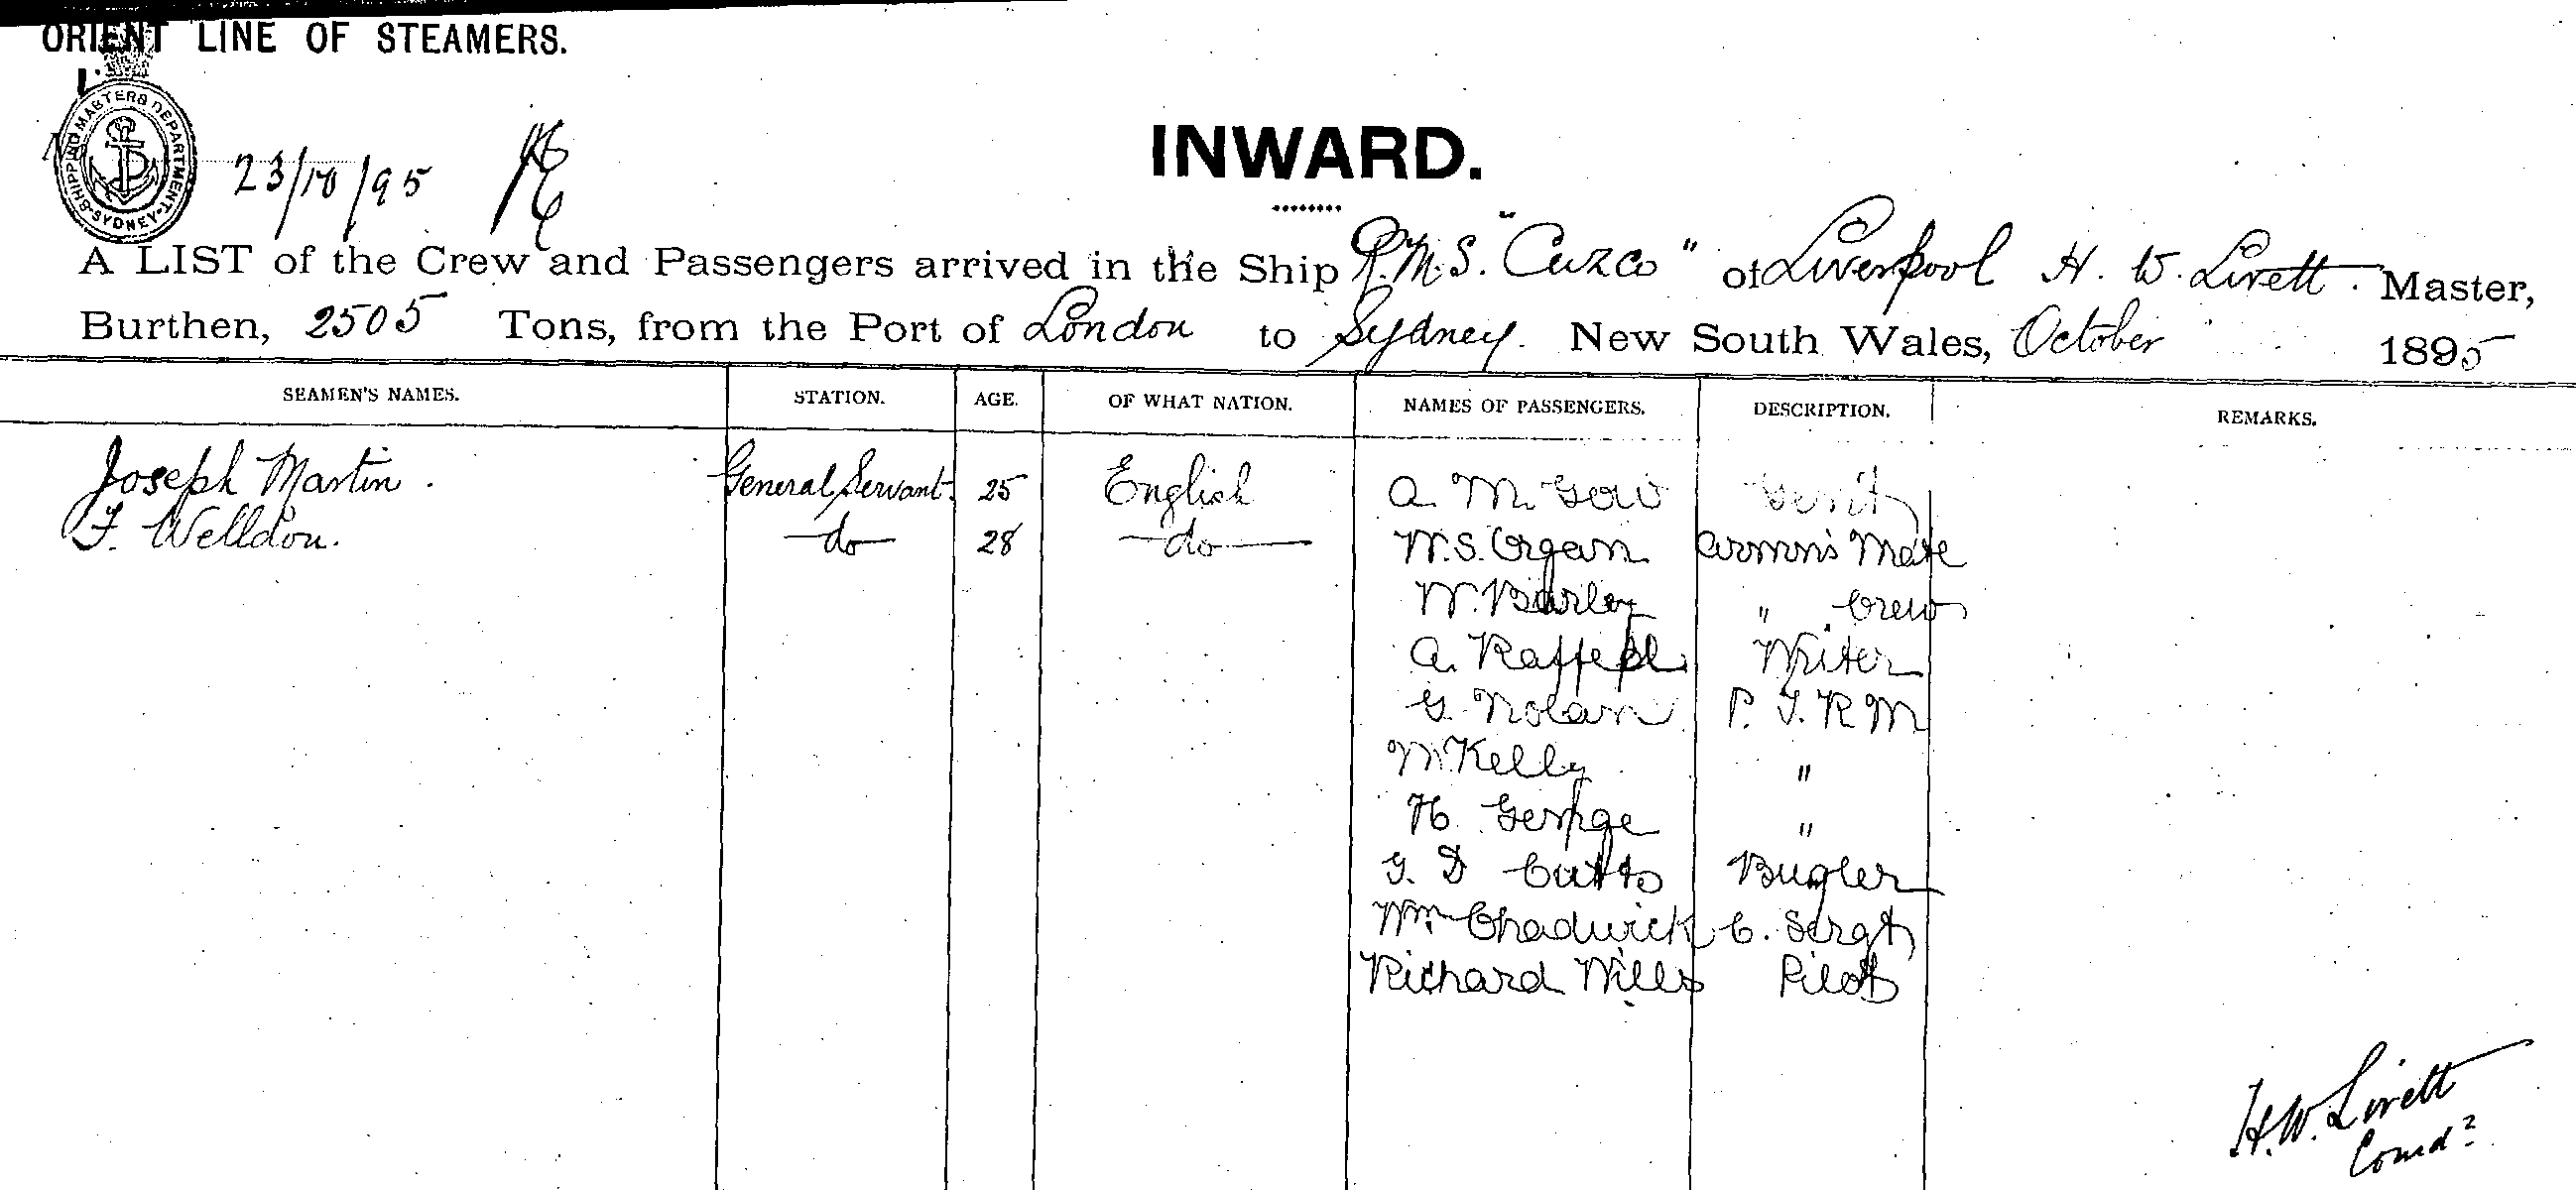 ORIENT LINE OF STEAMERS.
SHIPPING MASTERS DEPARTMENT SYDNEY
23/10/95
INWARD.
A LIST of the Crew and Passengers arrived in the Ship R.M.S. "Cuzco" of Liverpool H. W. Livett. Master,
Burthen, 2505 Tons, from the Port of London to Sydney. New South Wales, October 1895
SEAMEN'S NAMES. STATION. AGE. OF WHAT NATION. NAMES OF PASSENGERS. DESCRIPTION. REMARKS.
Joseph Martin. General Servant. 25 English A. M. Gow Gent
F. Welldon. do 28 do W. S. Organ Armrs Mate
W. Barley " Crew
A. Writer
G. Nolan P. I. R M
M. Kelly "
H. George "
G. D Cutts Bugler
Wm Chadwick C. Sergt
Richard Wills Pilot
H. W. Livett
Comdr